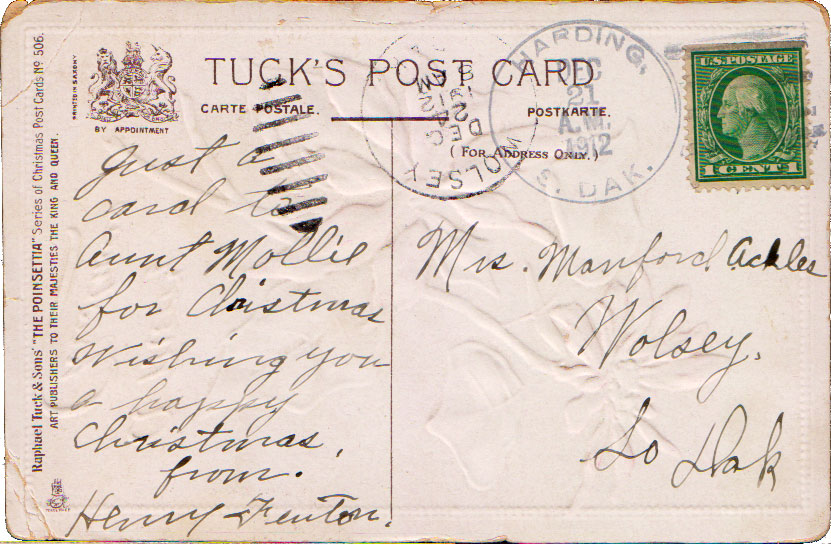 TUCK'S POST CARD
CARTE POSTALE.
POSTKARTE.
( FOR ADDRESS ONLY. )
BY APPOINTMENT
PRINTED IN SAXONY
Raphael Tuck & Sons' "THE POINSETTIA" Series of Christmas Post Cards Nº 506.
ART PUBLISHERS TO THEIR MAJESTIES THE KING AND QUEEN.
WOLSEY
DEC
24
9 AM
1912
HARDING,
DEC
21
A.M.
1912
S. DAK.
U.S. POSTAGE
1 CENT 1
Just a
card to
Aunt Mollie
for Christmas
Wishing you
a happy
Christmas,
from.
Henry Fenton.
Mrs. Manford Ackles
Wolsey.
So Dak